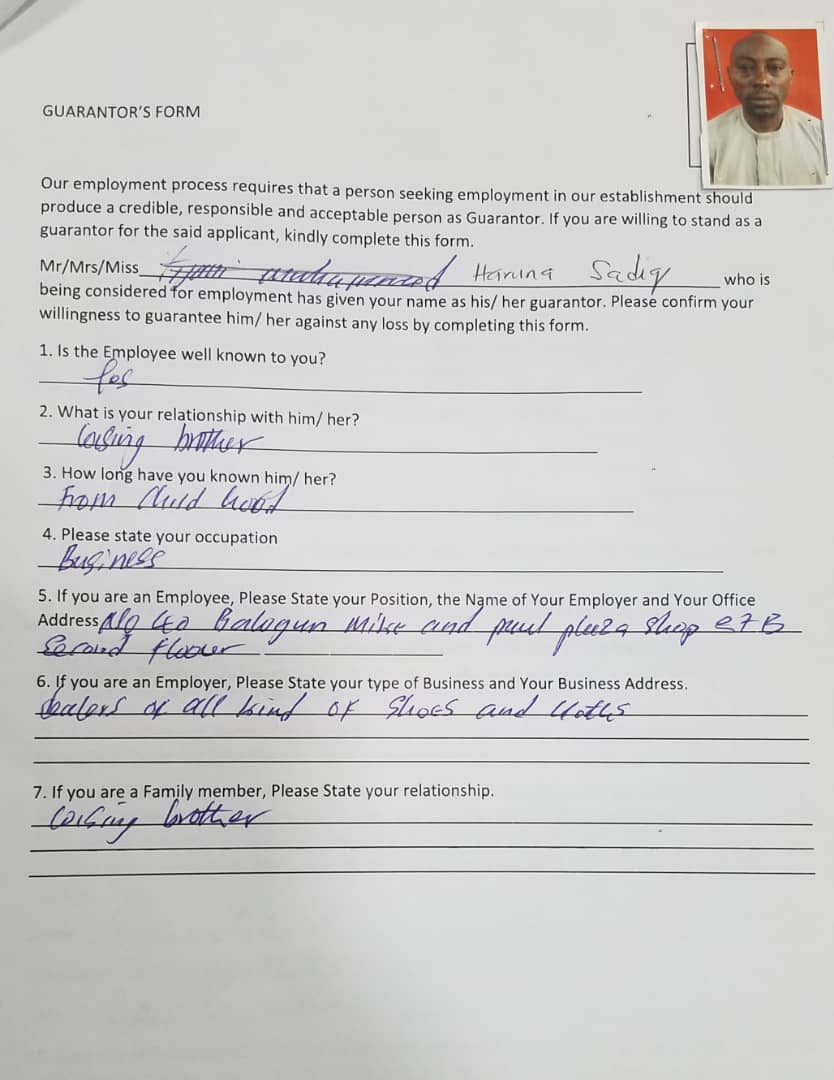 GUARANTOR'S FORM
Our employment process requires that a person seeking employment in our establishment should
produce a credible, responsible and acceptable person as Guarantor. If you are willing to stand as a
guarantor for the said applicant, kindly complete this form.
Mr/Mrs/Miss Haruna Sadiq who is
being considered for employment has given your name as his/ her guarantor. Please confirm your
willingness to guarantee him/ her against any loss by completing this form.
1. Is the Employee well known to you?
Yes
2. What is your relationship with him/ her?
brother
3. How long have you known him/ her?
from Child hood
4. Please state your occupation
Business
5. If you are an Employee, Please State your Position, the Name of Your Employer and Your Office
Address Balogun Mike and paul plaza shop B
Second floower
6. If you are an Employer, Please State your type of Business and Your Business Address.
dealers of all kind of Shoes and
7. If you are a Family member, Please State your relationship.
brother